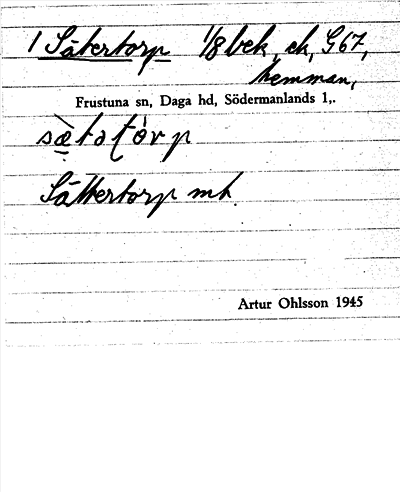 1 Sätertorp 1/8 bek, ek, G67,
hemman,
Frustuna sn, Daga hd, Södermanlands l,.
sæ̀tətòrp
Sättertorp mt.
Artur Ohlsson 1945